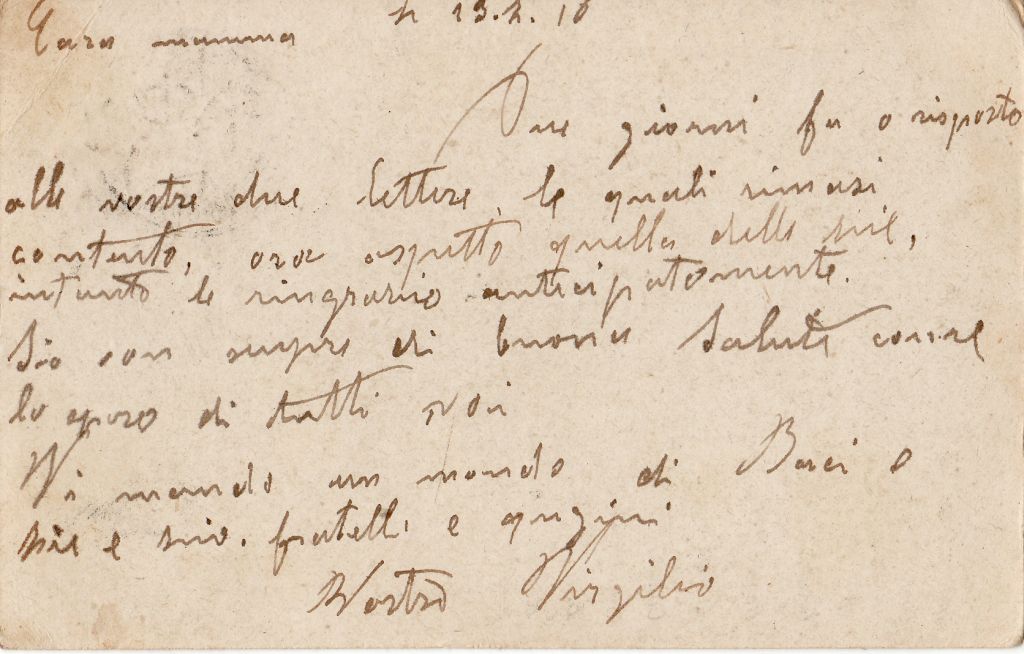 Cara mamma
li 13.2.18
Due giorni fa o risposto
alle vostre due lettere, le quali rimasi
contento, ora aspetto quella delle zie,
intanto le ringrazio anticipatamente.
Sio son sempre di buona salute come
lo spero di tutti voi
Vi mando un mondo di Baci e
zie e zio. fratelli e qugini
Vostro Virgilio